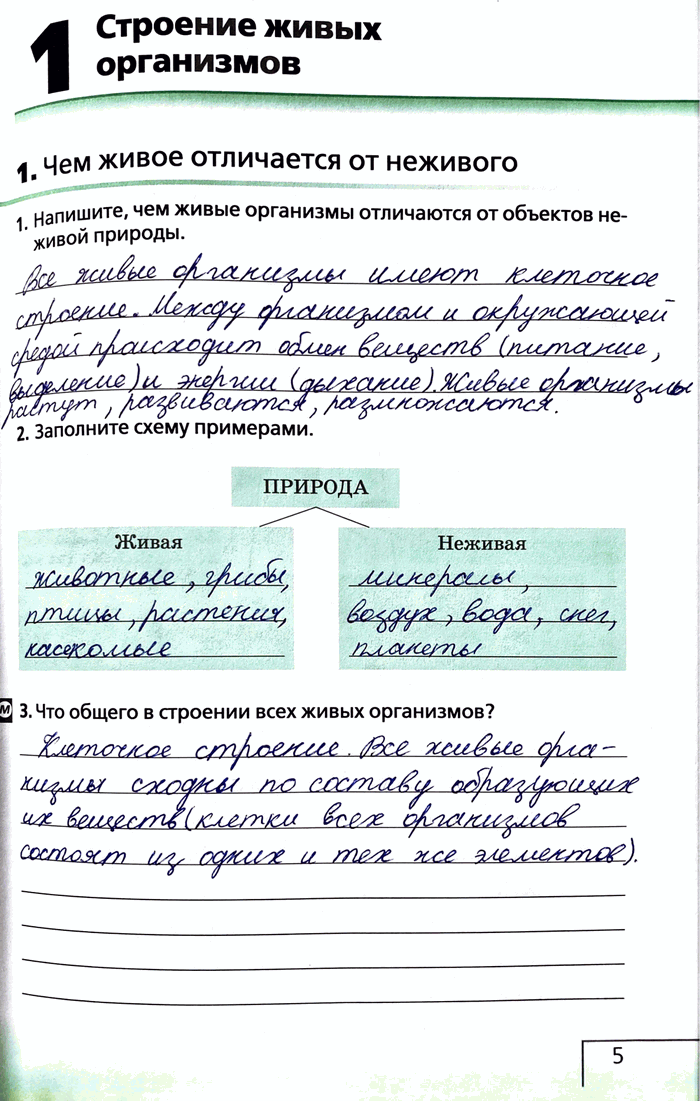 1
Строение живых
организмов
1. Чем живое отличается от неживого
1. Напишите, чем живые организмы отличаются от объектов не-
живой природы.
Все живые организмы имеют клеточное
строение. Между организмом и окружающей
средой происходит обмен веществ (питание,
выделение) и энергии (дыхание). Живые организмы
растут, развиваются, размножаются.
2. Заполните схему примерами.
ПРИРОДА
Живая
животные, грибы,
птицы, растения,
насекомые
Неживая
минералы,
воздух, вода, снег,
планеты
М 3. Что общего в строении всех живых организмов?
Клеточное строение. Все живые орга-
низмы сходны по составу образующих
их веществ (клетки всех организмов
состоят из одних и тех же элементов).
5